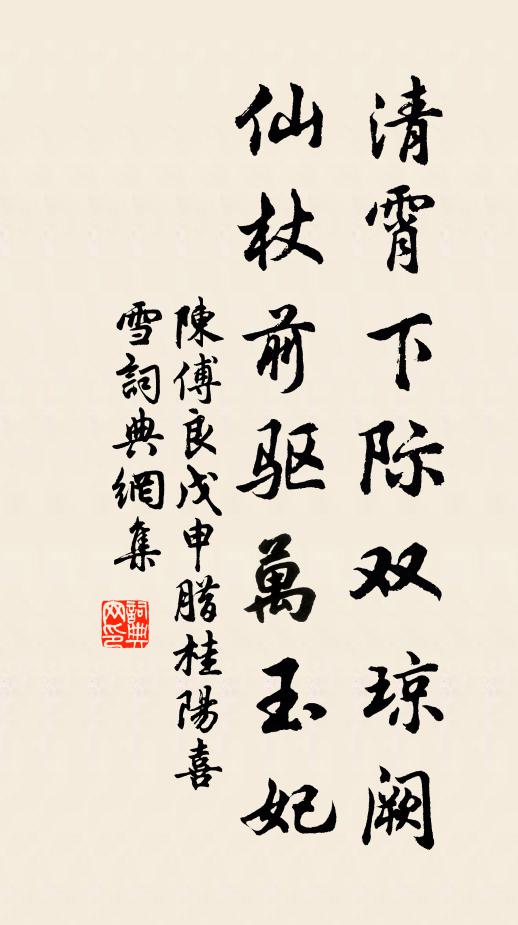 清霄下际双琼阙
仙杖前驱萬玉妃
陳傅良戊申腊桂陽喜
雪詞典網集
詞典网印